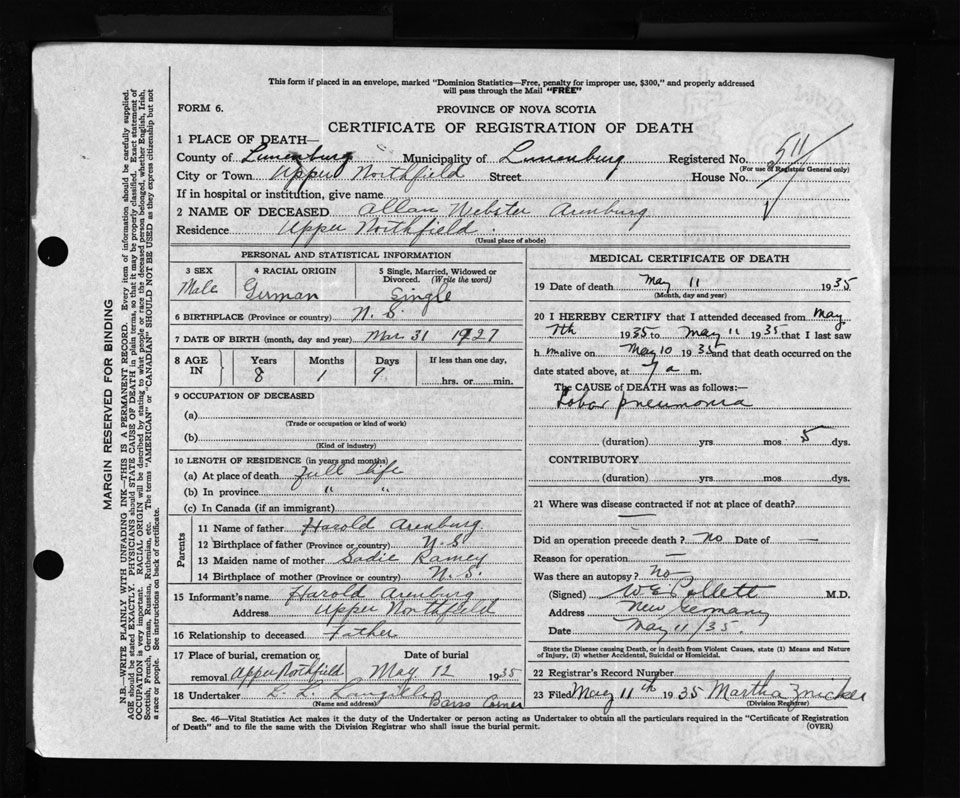 This form if placed in an envelope, marked "Dominion Statistics—Free, penalty for improper use, $300," and properly addressed
will pass through the Mail "FREE"
FORM 6.
PROVINCE OF NOVA SCOTIA
CERTIFICATE OF REGISTRATION OF DEATH
1 PLACE OF DEATH—
County of Lunenburg Municipality of Lunenburg Registered No. 511
(For use of Registrar General only)
City or Town Upper Northfield Street House No.
If in hospital or institution, give name
2 NAME OF DECEASED Allan Webster Arenburg
Residence Upper Northfield.
(Usual place of abode)
PERSONAL AND STATISTICAL INFORMATION
3 SEX 4 RACIAL ORIGIN 5 Single, Married, Widowed or
Divorced. (Write the word)
Male German Single
6 BIRTHPLACE (Province or country) N. S.
7 DATE OF BIRTH (month, day and year) Mar 31 1927
8 AGE IN Years Months Days If less than one day,
8 1 9 hrs. or min.
9 OCCUPATION OF DECEASED
(a)
(Trade or occupation or kind of work)
(b)
(Kind of industry)
10 LENGTH OF RESIDENCE (in years and months)
(a) At place of death Full life
(b) In province " "
(c) In Canada (if an immigrant)
Parents
11 Name of father Harold Arenburg
12 Birthplace of father (Province or country) N. S
13 Maiden name of mother Sadie Ramey
14 Birthplace of mother (Province or country) N. S.
15 Informant's name Harold Arenburg
Address Upper Northfield
16 Relationship to deceased Father
17 Place of burial, cremation or Date of burial
removal Upper Northfield May 12 1935
18 Undertaker L. L. Langille
(Name and address) Barss Corner
MEDICAL CERTIFICATE OF DEATH
19 Date of death May 11 1935
(Month, day and year)
20 I HEREBY CERTIFY that I attended deceased from May
7th 1935 to May 11 1935 that I last saw
h m alive on May 10 1935 and that death occurred on the
date stated above, at 7 a m.
The CAUSE OF DEATH was as follows:—
Lobar pneumonia
(duration) yrs. mos. 5 dys.
CONTRIBUTORY
(duration) yrs. mos. dys.
21 Where was disease contracted if not at place of death?
—
Did an operation precede death? No Date of —
Reason for operation —
Was there an autopsy? No
(Signed) W E Pollett M.D.
Address New Germany
Date May 11/35.
State the Disease causing Death, or in death from Violent Causes, state (1) Means and Nature
of Injury, (2) whether Accidental, Suicidal or Homicidal.
22 Registrar's Record Number
23 Filed May 11th 1935 Martha Zwicker
(Division Registrar)
Sec. 46—Vital Statistics Act makes it the duty of the Undertaker or person acting as Undertaker to obtain all the particulars required in the "Certificate of Registration
of Death" and to file the same with the Division Registrar who shall issue the burial permit. (OVER)
MARGIN RESERVED FOR BINDING
N.B.—WRITE PLAINLY WITH UNFADING INK—THIS IS A PERMANENT RECORD. Every item of information should be carefully supplied.
AGE should be stated EXACTLY. PHYSICIANS should STATE CAUSE OF DEATH in plain terms, so that it may be properly classified. Exact statement of
OCCUPATION is very important. RACIAL ORIGIN will be described by stating to what people or race the deceased person belonged, whether English, Irish,
Scottish, French, German, Russian, Ruthenian, etc. The terms "AMERICAN" or "CANADIAN" SHOULD NOT BE USED as they express citizenship but not
a race or people. See instructions on back of certificate.